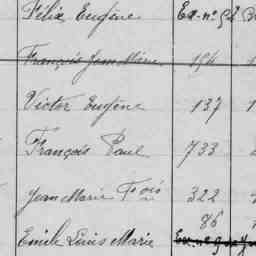 Félix Eugène Ex-nº 92
François Jean Marie 154
Victor Eugène 137
François Paul 733
Jean Marie Fois 322
86
Emile Louis Marie Ex-nº